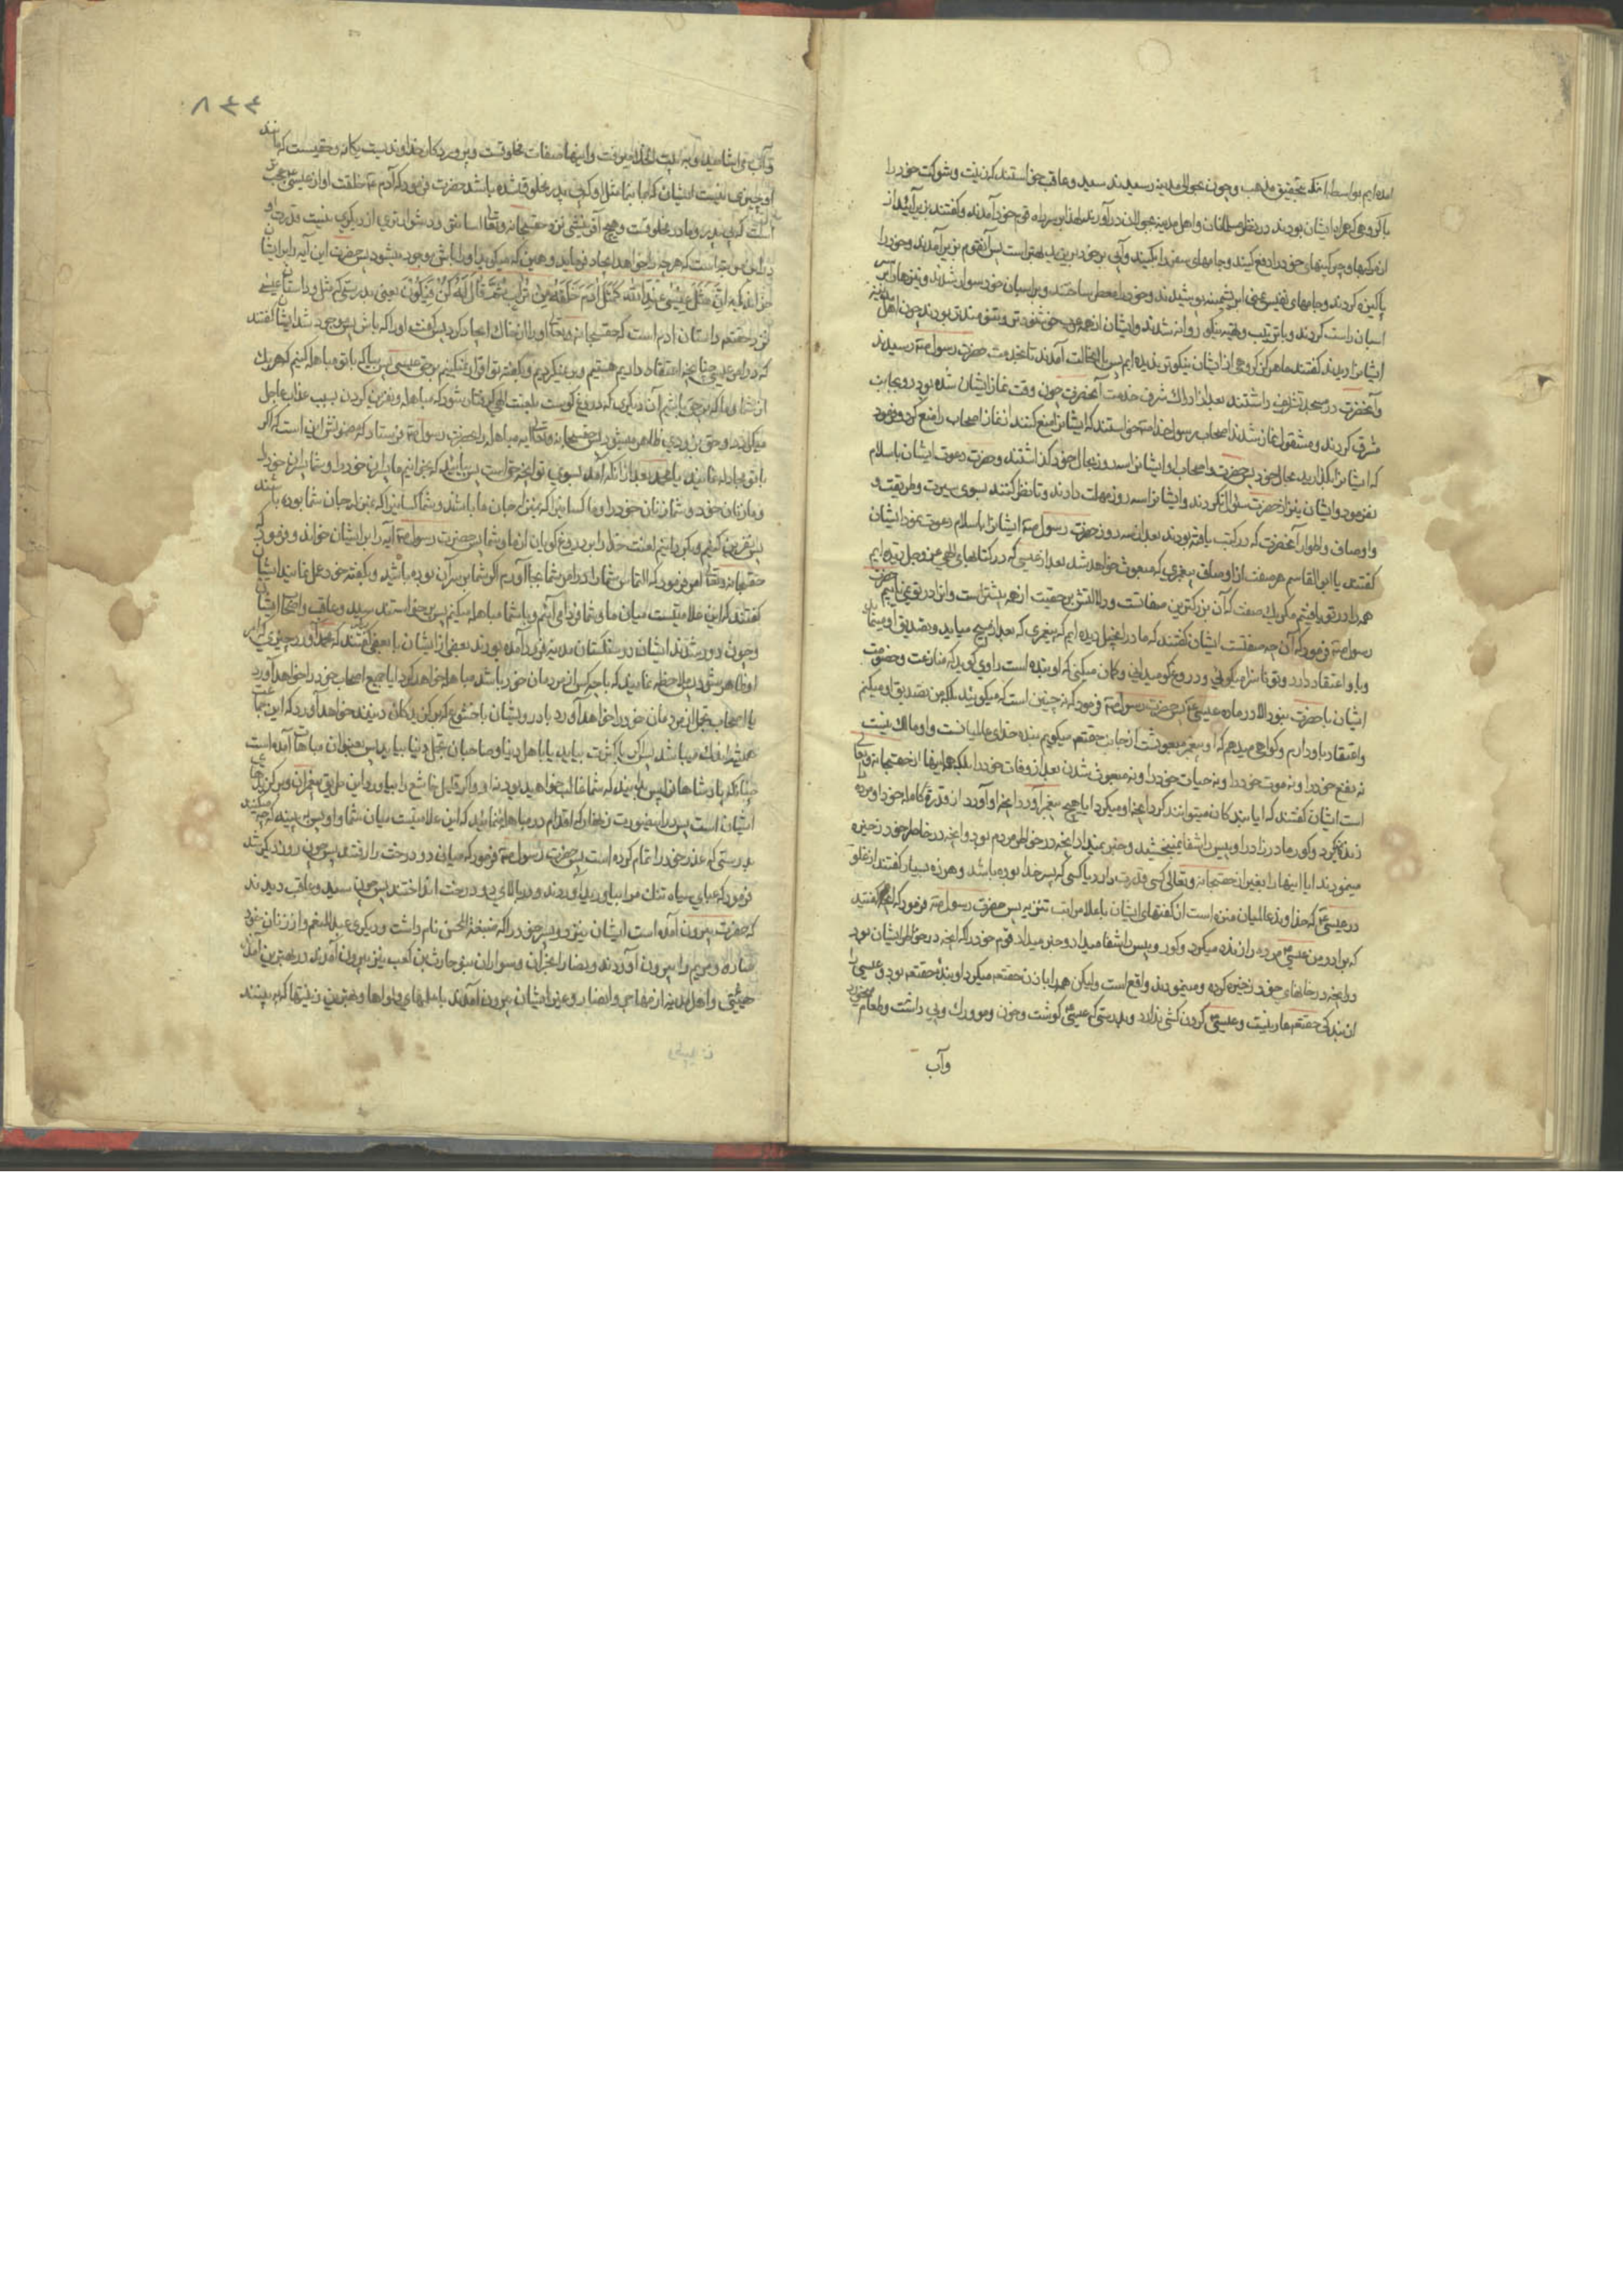 امده‌ایم بواسطه آنکه تحقیق مذهب وچون بحوالی مدینه رسیدند سید وعاقب خواستند که زینت وشوکت خود را
با کروهی که همراه ایشان بودند در نظر مسلمانان واهل مدینه بجولان درآورند لهذا بر سر راه قوم خود آمدند وکفتند زیر آئید از
مرکبها وچرکینهای خود را دفع کنید وجامهای سفر را بکنید وآبی بر خود بریزید بهتر است پس آنقوم بزیر آمدند وخود را
پاکیزه کردند وجامهای نفیس یمنی ابریشمینه پوشیدند وخود را معطر ساختند وبر اسبان خود سوار شدند ونیزها را بر سر
اسبان راست کردند وبا ترتیب وهیئه نیکو روانه شدند وایشان از همه عرب خوشخوتر وتنومندتر بودند چون اهل مدینه
ایشانرا دیدند کفتند ما هرکز کروهی از ایشان نیکوتر ندیده‌ایم پس با این حالت آمدند تا بخدمت حضرت رسول ص رسیدند
وآنحضرت در مسجد تشریف داشتند بعد از ادراک شرف خدمت آنحضرت چون وقت نماز ایشان شده بود رو بجانب
مشرق کردند ومشغول نماز شدند اصحاب رسول خدا ص خواستند که ایشانرا منع کنند از نماز اصحاب را منع کرد وفرمود
که ایشانرا بگذارید بحال خود پس حضرت واصحاب او ایشانرا سه روز بحال خود گذاشتند وحضرت دعوت ایشان باسلام
نفرمود وایشان نیز از حضرت سؤال نکردند وایشانرا سه روز مهلت دادند تا نظر کنند بسوی سیرت وطریقت و
واوصاف واطوار آنحضرت که در کتب یافته بودند بعد از سه روز حضرت رسول ص ایشانرا باسلام دعوت نمود ایشان
کفتند یا ابی القاسم هر صفت از اوصاف پیغمبری که مبعوث خواهد شد بعد از عیسی که در کتابهای الهی عز وجل دیده‌ایم
همه را در تو یافتیم مکر یک صفت که آن بزرکترین صفاتست ودلالتش بر حقیت از همه بیشتر است وانرا در تو نمی‌یابیم حضرت
رسول ص فرمود که آن چه صفتست ایشان کفتند که ما در انجیل دیده‌ایم که پیغمبری که بعد از مسیح میاید وتصدیق او مینماید
وباو اعتقاد دارد وتو ناسزا میکوئی ودروغ‌کو میدانی وکمان میکنی که او بنده است راوی کوید که منازعت وخصومت
ایشان با حضرت نبود الا در ماده عیسی ع پس حضرت رسول ص فرمود که نه چنین است که میکوئید بلکه من تصدیق او میکنم
واعتقاد باو دارم وکواهی میدهم که او پیغمبر مبعوثست از جانب حقتعم میکویم بنده خدای عالمیانست واو مالک نیست
نه نفع خود را ونه موت خود را ونه حیات خود را ونه مبعوث شدن بعد از وفات خود را بلکه همه اینها از حقسبحانه وتعالی
است ایشان کفتند که ایا بندکان میتوانند کرد آنچه او میکرد ایا هیچ پیغمبر آورد آنچه او آورد از قدرة کامله خود او مرده
زنده نمیکرد وکور مادرزاد را وپیس را شفا نمیبخشید وخبر نمیداد از آنچه در خواطر مردم بود وآنچه در خانه‌ها خود ذخیره
مینمودند ایا اینها را بغیر از حقسبحانه وتعالی کسی قدرت دارد یا کسی که پسر خدا بوده باشد وهرزه بسیار کفتند از غلو
در عیسی ع که خداوند عالمیان منزه است از کفتهای ایشان باعلا مراتب تنزیه پس حضرت رسول ص فرمود که آنچه کفتید
که برادر من عیسی ع مرده را زنده میکرد وکور وپیس را شفا میداد وخبر میداد قوم خود را که آنچه در خواطر ایشان بود
وآنچه در خانهای خود ذخیره کرده ومینمودند واقع است ولیکن همه را باذن حقتعم میکرد او بنده حقتعم بود وعیسی را
از بندکی حقتعم عار نیست وعیسی ع کردن کشی ندارد وبدرستی که عیسی ع کوشت وخون ومو ورک وپی داشت وطعام میخورد
وآب
۸۴۴
وآب می‌اشامید وبه بیت الخلا میرفت واینها صفات مخلوقست وپروردکار خداوندیست یکانه وحقیست که مانند
او چیزی نیست ایشان کفتند بنما مثل او که بی پدر مخلوق شده باشد حضرت فرمود که آدم ع خلقت او از عیسی ع عجب تر
است که بی پدر ومادر مخلوقست وهیچ آفرینشی نزد حقسبحانه وتعالی اسانتر ودشوارتر از دیکری نیست قدرت او
در این مرتبه است که هر چیز را خواهد ایجاد فرماید وهمین که میکوید باو را باش موجود میشود پس حضرت این آیه را بر ایشان
خواند که إِنَّ مَثَلَ عِيسَى عِنْدَ اللَّهِ كَمَثَلِ آدَمَ خَلَقَهُ مِنْ تُرَابٍ ثُمَّ قَالَ لَهُ كُنْ فَيَكُونُ یعنی بدرستی که مثل وداستان عیسی
نزد حقتعم داستان ادم است که حقسبحانه وتعالی او را از خاک ایجاد کرد پس کفت او را که باش پس موجود شد ایشان کفتند
که ما در امر عیسی چنانچه اعتقاد داریم هستیم وبر نمیکردیم وبکفته تو اقرار نمیکنیم بیا که با تو مباهله کنیم که هر یک
از شما وما که بر حق باشیم آن دیکری که دروغکوست بلعنت الهی کرفتار شود که مباهله ونفرین کردن بسبب عذاب عاجل
میکردد وحق بزودی ظاهر میشود پس حقسبحانه وتعالی ایه مباهله را بحضرت رسول ص فرستاد که مضمونش این است که اکر
با تو مجادله نمایند یا محمد بعد از آنکه آمد بسوی تو آنچه حق است پس بکو بیائید که بخوانیم ما پسران خود را وشما پسران خود را
وما زنان خود وشما زنان خود را وما کسانیرا که بمنزله جان ما باشند وشما کسانیرا که بمنزله جان شما بوده باشند
پس نفرین کنیم وبکردانیم لعنت خدا را بر دروغ کویان از ما وشما پس حضرت رسول ص آیه را بر ایشان خواند وفرمود که
حقسبحانه وتعالی امر فرمود که التماس شما را در امر شما بجا آورم اکر شما بر سر آن بوده باشید وبکفته خود عمل نمائید ایشان
کفتند که این علامتیست میان ما وشما فردا می‌آئیم وبا شما مباهله میکنیم پس برخواستند سید وعاقب واصحاب ایشان
وچون دور شدند ایشان در سنکستان مدینه فرود آمده بودند بعضی از ایشان با بعضی کفتند که محمد آورد چیزی که امر
او ظاهر شود پس ملاحظه نمائید که با چه کس از مردمان خود با شما مباهله خواهد کرد ایا جمیع اصحاب خود را خواهد آورد
یا اصحاب تجمل از مردمان خود را خواهد آورد یا درویشان با خشوع که برکزیدکان دینند خواهد آورد که این جماعت
همیشه اندک میباشند پس اکر با کثرت بیاید یا با اهل دنیا وصاحبان تجمل دنیا بیاید پس بعنوان مباهات آمده است
چنانکه پادشاهان پس بدانید که شما غالب خواهید بود نه او واکر قلیل خاشع را بیاورد این طریق پیغمبران وبرکزیدهای
ایشان است پس در اینصورت زنهار که اقدام در مباهله ننمائید که این علامتیست میان شما واو پس ببینید که چه میکند
بدرستی که عذر خود را تمام کرده است پس حضرت رسول ص فرمود که میان دو درخت را رفتند پس چون روز دیکر شد
فرمود که عبای سیاه تنک مرا بیاورید آوردند وبر بالای دو درخت انداختند پس چون سید وعاقب دیدند
که حضرت بیرون آمده است ایشان نیز دو پسر خود را که صبغة المحسن نام داشت ودیکری عبد المنعم واز زنان خود
ساره ومریم را بیرون آوردند ونصارا نجران وسواران بنو حارث بن کعب نیز بیرون آمدند در بهترین
هیئتی واهل مدینه از مهاجر وانصار وغیر ایشان بیرون آمدند با علمهای ولواها وبهترین زینتها که ببینند